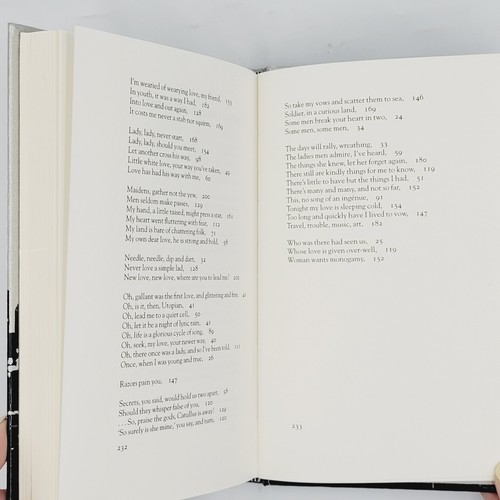 I'm wearied of wearying love, my friend, 155
In youth, it was a way I had, 182
Into love and out again, 128
It costs me never a stab nor squirm, 169
Lady, lady, never start, 168
Lady, lady, should you meet, 154
Let another cross his way, 98
Little white love, your way you've taken, 49
Love has had his way with me, 60
Maidens, gather not the yew, 200
Men seldom make passes, 129
My hand, a little raised, might press a star, 181
My heart went fluttering with fear, 112
My land is bare of chattering folk, 71
My own dear love, he is strong and bold, 98
Needle, needle, dip and dart, 32
Never love a simple lad, 128
New love, new love, where are you to lead me? 201
Oh, gallant was the first love, and glittering and fine, 41
Oh, is it, then, Utopian, 41
Oh, lead me to a quiet cell, 50
Oh, let it be a night of lyric rain, 41
Oh, life is a glorious cycle of song, 89
Oh, seek, my love, your newer way, 40
Oh, there once was a lady, and so I've been told, 111
Once, when I was young and true, 26
Razors pain you, 147
Secrets, you said, would hold us two apart, 58
Should they whisper false of you, 120
. . . So, praise the gods, Catullus is away! 129
'So surely is she mine,' you say, and turn, 102
232
So take my vows and scatter them to sea, 146
Soldier, in a curious land, 169
Some men break your heart in two, 24
Some men, some men, 34
The days will rally, wreathing, 33
The ladies men admire, I've heard, 59
The things she knew, let her forget again, 180
There still are kindly things for me to know, 119
There's little to have but the things I had, 51
There's many and many, and not so far, 152
This, no song of an ingénue, 91
Tonight my love is sleeping cold, 154
Too long and quickly have I lived to vow, 147
Travel, trouble, music, art, 182
Who was there had seen us, 25
Whose love is given over-well, 119
Woman wants monogamy, 152
233